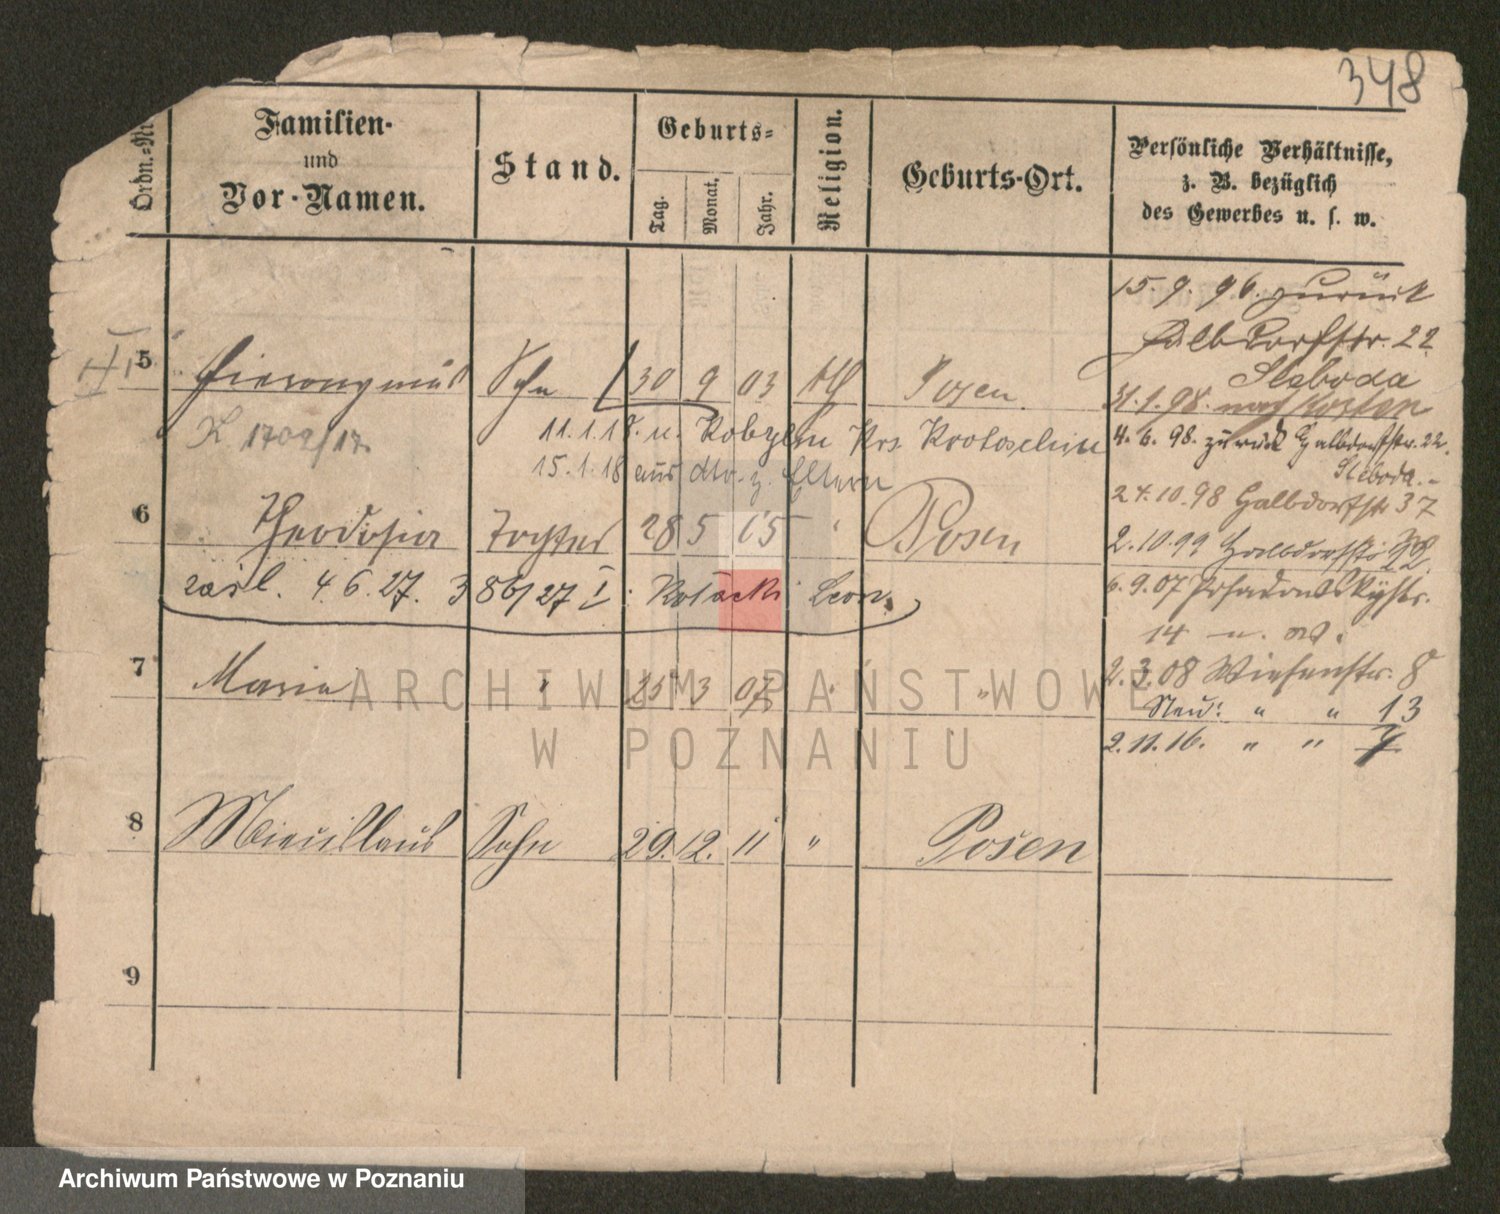 348
Ordn.-Nr.
Familien-
und
Vor-Namen.
Stand.
Geburts-
Tag.
Monat.
Jahr.
Religion.
Geburts-Ort.
Persönliche Verhältnisse,
z. B. bezüglich
des Gewerbes u. s. w.
15. 9. 96. zurück
Halbdorfstr. 22
Sleboda
31. 1. 98. nach Kosten
4. 6. 98. zurück Halbdorfstr. 22.
Sleboda.
24. 10. 98 Halbdorfstr 37
2. 10. 99 Halbdorfstr 22.
6. 9. 07
14
2. 3. 08 Wiesenstr. 8
Neu: " " 13
2. 11. 16. " " 7
5 Hieronymus Sohn 30 9 03 kth Posen
K 1702/17. 11. 1. 18. n. Kobylin Krs Krotoschin
15. 1. 18 aus dto. z. Eltern
6 Theodosia Tochter 28 5 05 " Posen
zasl. 4. 6. 27. 386/27 I. Kotacki Leon.
7 Maria " 25 3 07 " "
8 Miecislaus Sohn 29. 12. 11 " Posen
9
ARCHIWUM PAŃSTWOWE
W POZNANIU
Archiwum Państwowe w Poznaniu